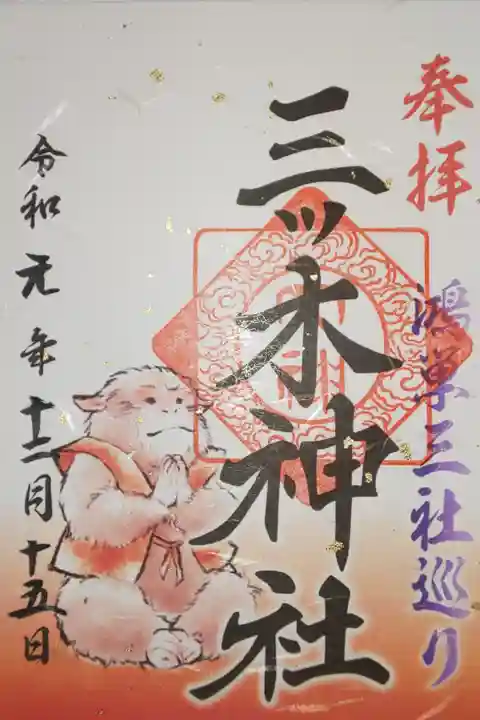 奉拝
鴻巣三社巡り
三ッ木神社
令和元年十二月十五日